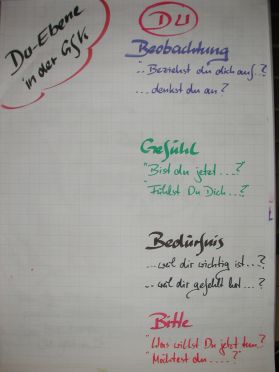 Du-Ebene
in der GfK
DU
Beobachtung
...Beziehst du dich auf..?
...denkst du an?
Gefühl
"Bist du jetzt....?
"Fühlst Du Dich...?
Bedürfnis
...weil dir wichtig ist...?
...weil dir gefehlt hat...?
Bitte
"Was willst Du jetzt tun?
"Möchtest du.....?"